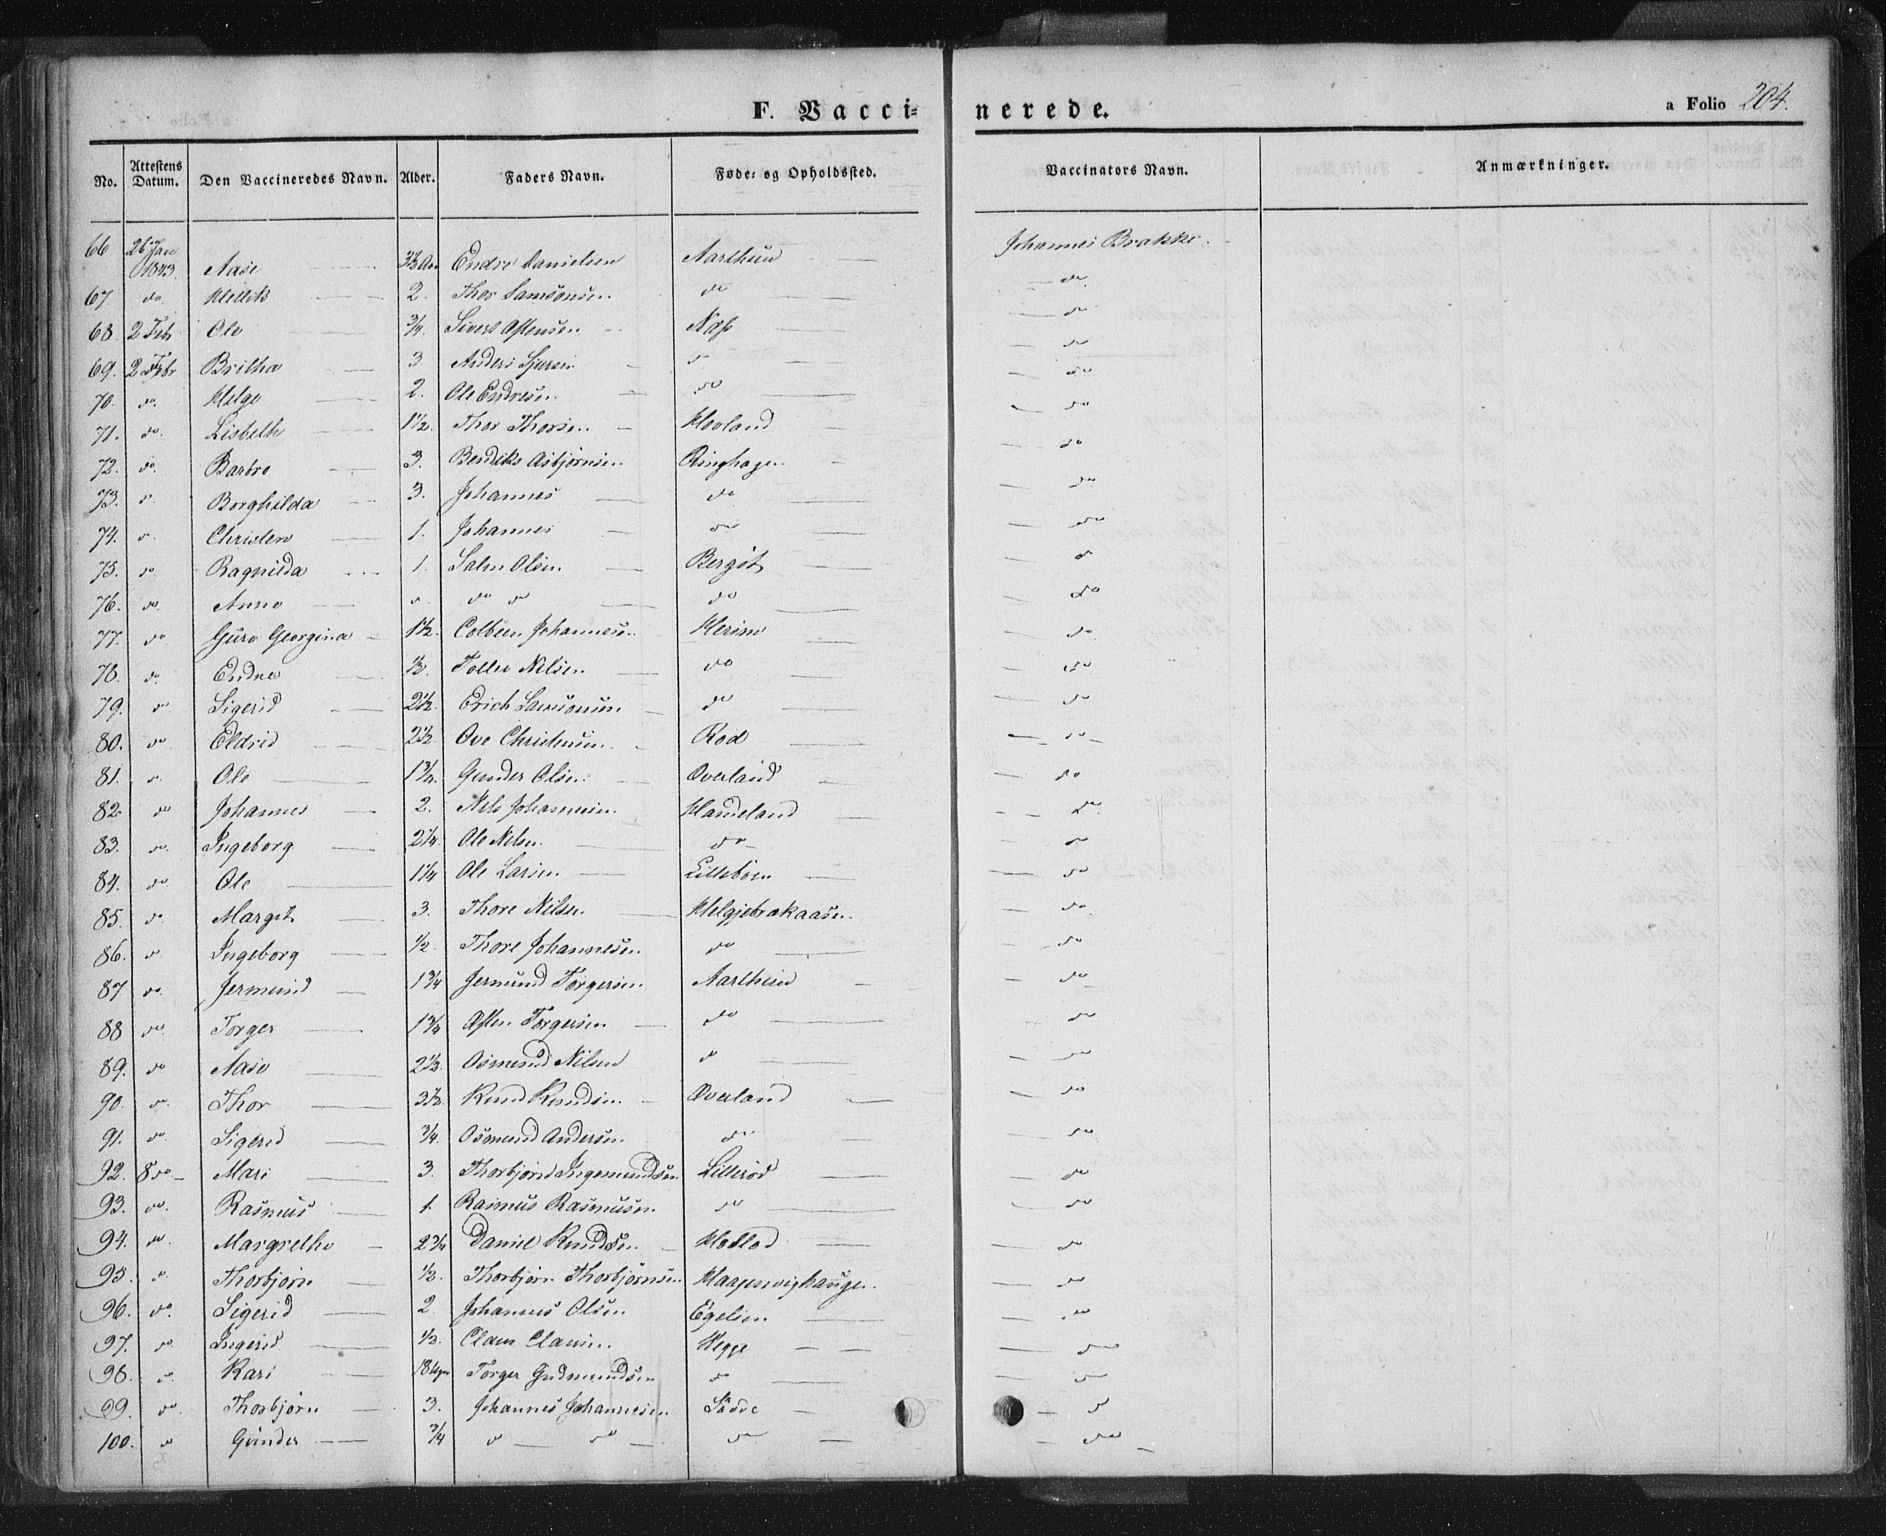 F. Vacci-
nerede.
a Folio 204.
No. Attestens Datum. Den Vaccineredes Navn. Alder. Faders Navn. Føde- og Opholdssted. Vaccinators Navn. Anmærkninger.
66 26 Jan 1843 Aase Endre Danielsen Aarthun Johannes Brakke.
67. do 2. Thor Samsonsen do do
68. 2 Feb Ole 3/4 Sivert Næss do
69. 2 Febr Britha 3. Anders do do
70. do. Helge 2. Ole Endresen do do
71. do. Lisbeth 1 1/2. Thor Thorsen Hovland do
72. do. Barbro 3. Bendiks Asbjørnsen Ringhagen do
73. do Borghilda 3. Johannes do do
74. do Christen 1. Johannes do do
75. do Ragnilda 1. Olsen Bergit do
76. do. Anne do do do do do
77. do Guro Georgina 1 1/2. Colbeen Johannesen do
78. do. Endre 1/2. Nilsen do do
79. do. Sigerid 2 1/2. Erich Samsonsen do do
80. do Eldrid 2 1/2. Ove Christensen Rod do
81. do. Ole Gunder Olsen Øverland do
82. do Johannes 2. Nils Johannesen Handeland do.
83. do. Ingeborg 2 1/4 Ole Nilsen do do
84. do Ole 1 1/4 Ole Larsen do
85. do Margit 3. Thore Nilsen do
86. do Ingeborg 1/2 Thore Johannesen do do
87 do. Jermund 1 3/4 Jermund Torgersen Aarthun do
88 do Torger 1 3/4 Torgersen do do
89. do Aase Osmund Nilsen do do
90. do. Thor 3 1/2. Knud Knudsen Øverland do
91. do. Sigerid 3/4. Osmund Andersen do do
92. 8 do Mari 3. Thorbjørn Ingemundsen Lillerød do
93. do. Rasmus 1. Rasmus Rasmusen do do
94. do. Margrethe 2 3/4 Daniel Knudsen do
95. do. Thorbjørn 1/2. Thorbjørn Thorbjørnsen do
96. do Sigerid 2 Johannes Olsen do
97. do Ingerid 1/2. Hegge do
98. do. Kari 18 Uger Torger Gudmundsen do do
99. do. Thorbjørn 3. Johannes Johannesen do
100. do Gunder 3/4 do do do do